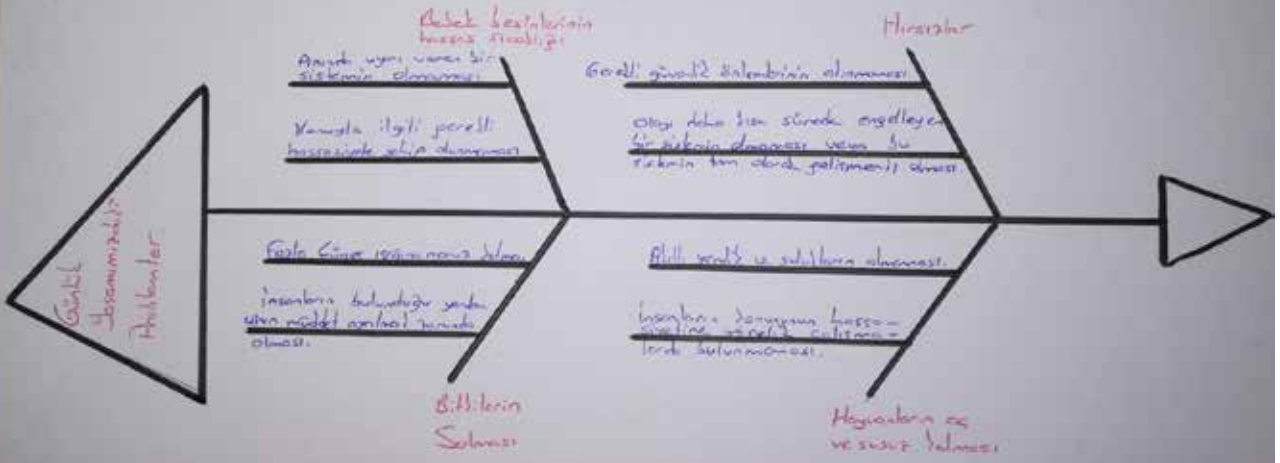 Bebek besinlerinin
hassas sıcaklığı
Anında uyarı veren bir
sistemin olmaması.
Konuyla ilgili gerekli
hassasiyete sahip olunmaması
Hırsızlar
Gerekli güvenlik önlemlerinin alınmaması
Olayı daha kısa sürede engelleyen
bir sistemin olmaması veya bu
sistemin tam olarak gelişmemiş olması.
Günlük
Yaşamımızdaki
Problemler
Fazla Güneş ışığına maruz kalması
İnsanların bulunduğu yerden
uzun müddet ayrılmak zorunda
olması.
Bitkilerin
Solması
Akıllı yemlik ve sulukların olmaması.
İnsanların konunun hassa-
siyetine yönelik çalışma-
larda bulunmaması.
Hayvanların aç
ve susuz kalması